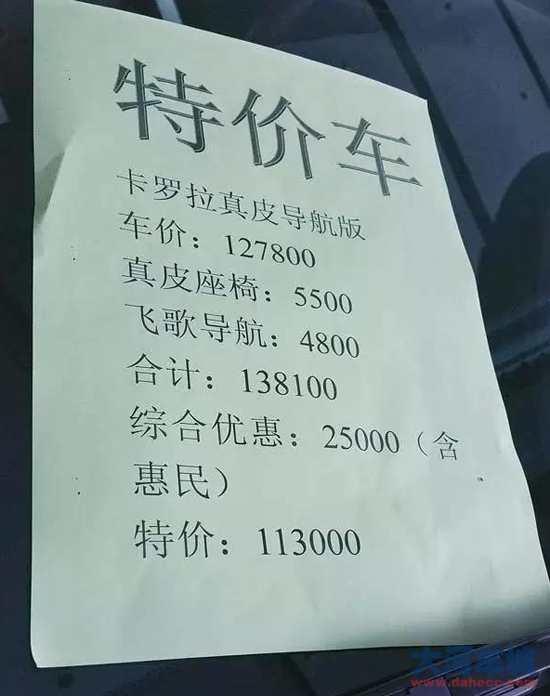 特价车
卡罗拉真皮导航版
车价：127800
真皮座椅：5500
飞歌导航：4800
合计：138100
综合优惠：25000（含
惠民）
特价：113000
www.dahecc.com